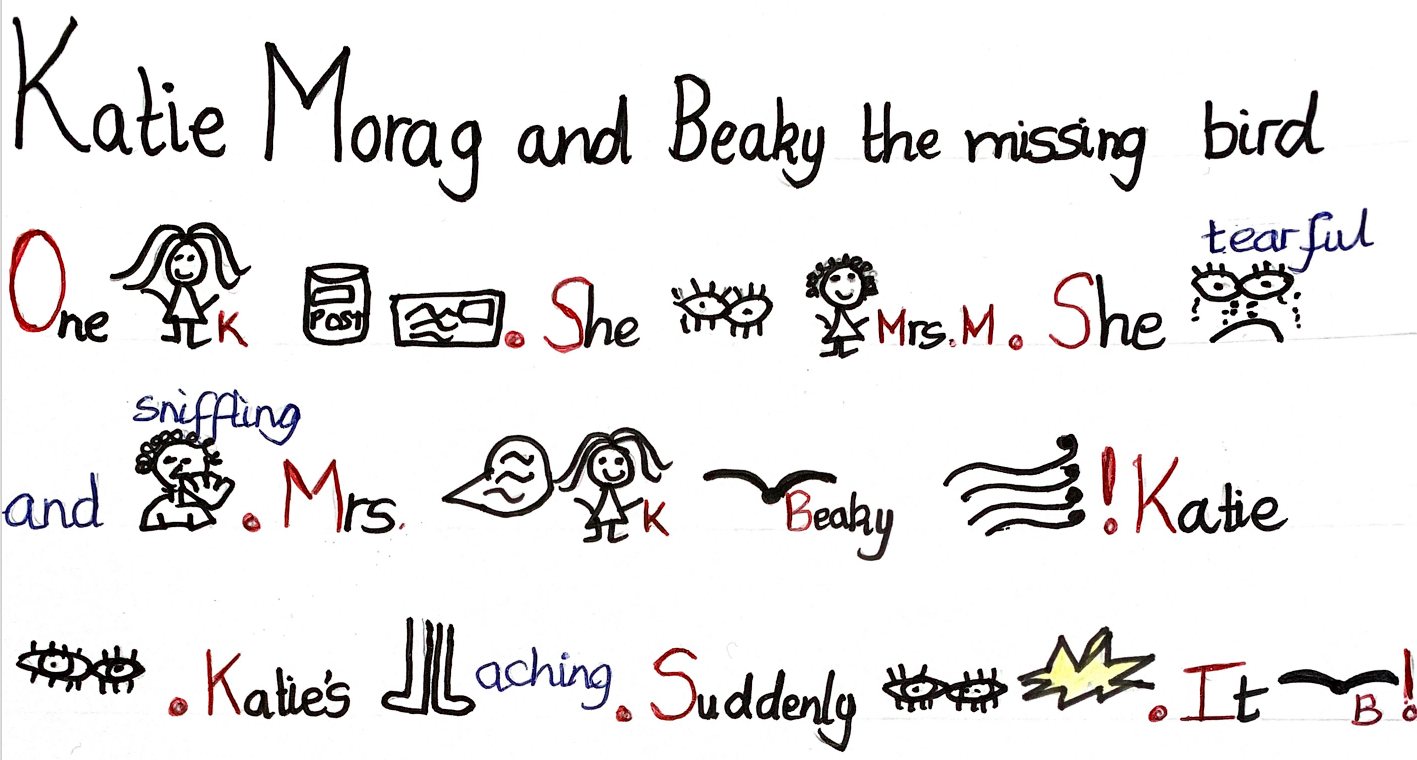 Katie Morag and Beaky the missing bird
tearful
One K POST . She Mrs. M. She
sniffling
and . Mrs. K Beaky ! Katie
. Katie's aching. Suddenly . It B!